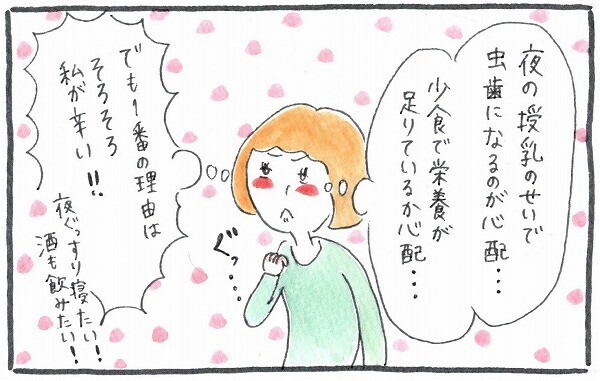 夜の授乳のせいで
虫歯になるのが心配…
少食で栄養が
足りているか心配…
でも1番の理由は
そろそろ
私が辛い!!
夜ぐっすり寝たい!
酒も飲みたい!!
ぐっ…